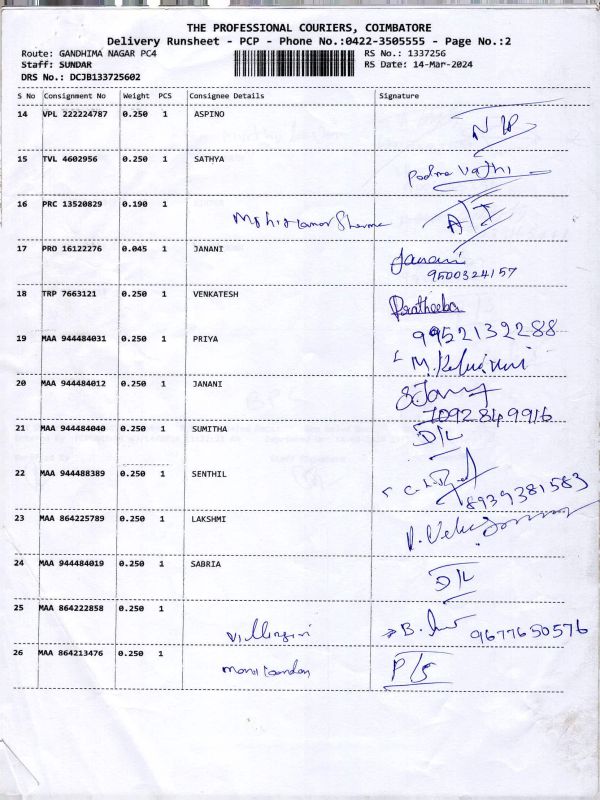 THE PROFESSIONAL COURIERS, COIMBATORE
Delivery Runsheet - PCP - Phone No.:0422-3505555 - Page No.:2
Route: GANDHIMA NAGAR PC4 RS No.: 1337256
Staff: SUNDAR RS Date: 14-Mar-2024
DRS No.: DCJB133725602
S No Consignment No Weight PCS Consignee Details Signature
14 VPL 222224787 0.250 1 ASPINO
15 TVL 4602956 0.250 1 SATHYA
Padma Vathi
16 PRC 13520829 0.190 1
17 PRO 16122276 0.045 1 JANANI
Janani
9500324157
18 TRP 7663121 0.250 1 VENKATESH
Pratheeba
9952132288
19 MAA 944484031 0.250 1 PRIYA
20 MAA 944484012 0.250 1 JANANI
7092849916
21 MAA 944484040 0.250 1 SUMITHA D/L
22 MAA 944488389 0.250 1 SENTHIL
8939381583
23 MAA 864225789 0.250 1 LAKSHMI
24 MAA 944484019 0.250 1 SABRIA
D/L
25 MAA 864222858 0.250 1
9677650576
26 MAA 864213476 0.250 1
P/S